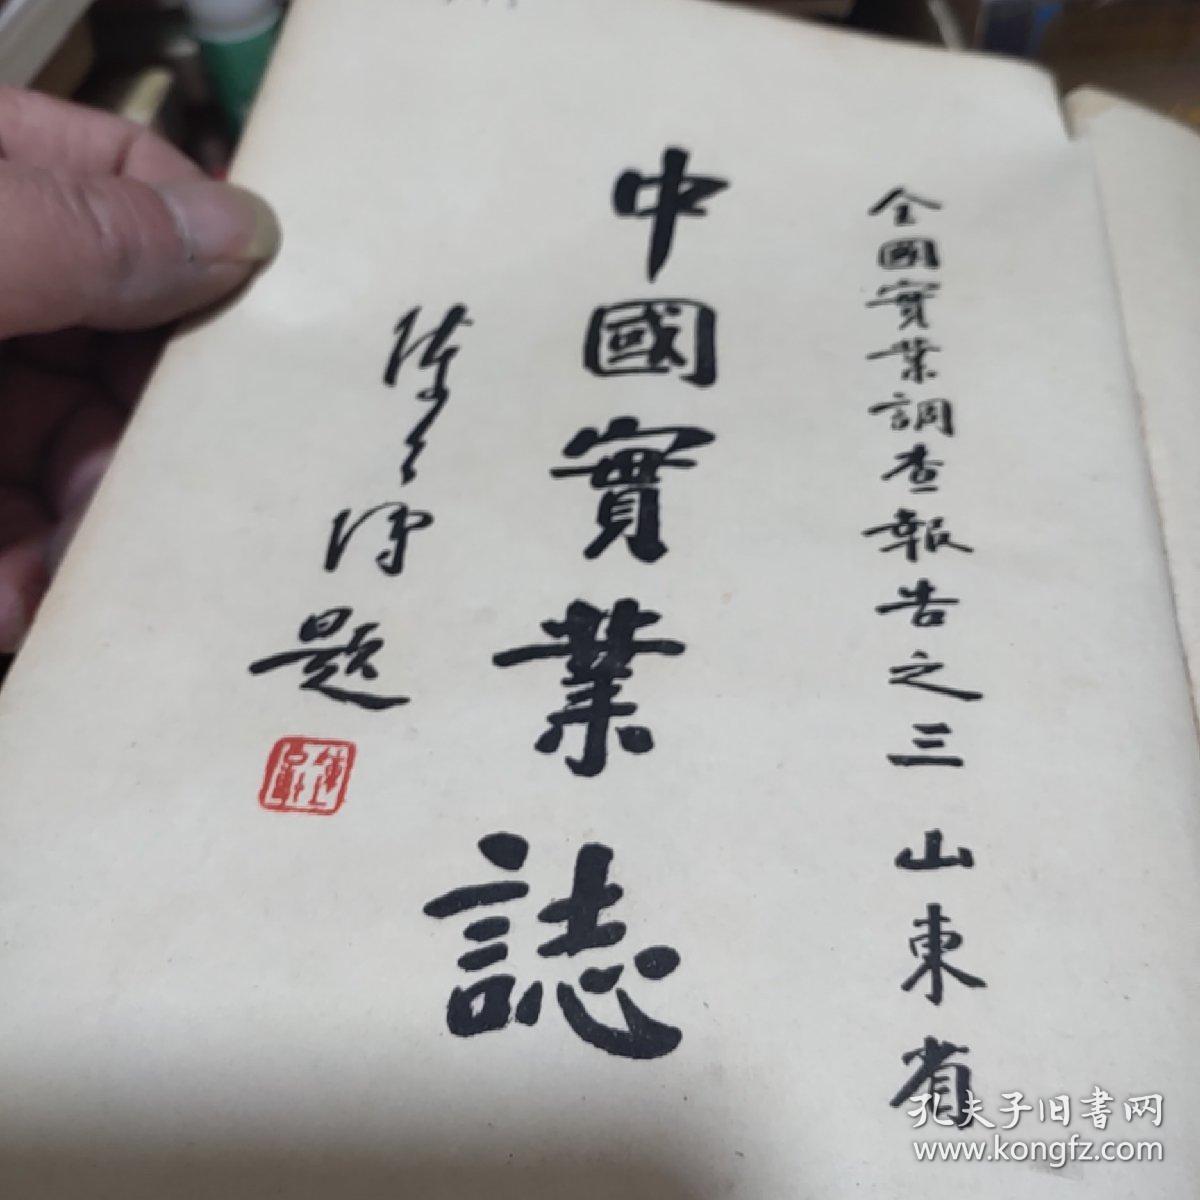 全國實業調查報告之三 山東省
中國實業誌
陳公博題
孔夫子旧书网
www.kongfz.com